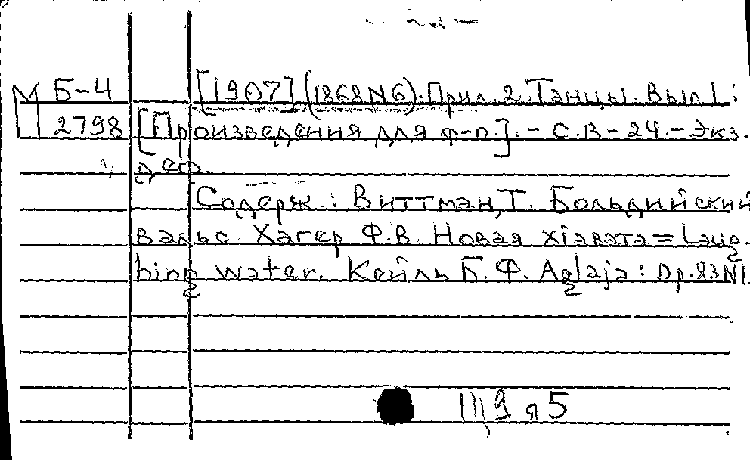 М Б-4 [1907] (1868 N6). Прил. 2. Танцы. Вып 1:
2798 [Произведения для ф-п.]. - С.13-24. - Экз.
деф.
Содерж.: Виттман, Т. Больдийский
вальс. Хагер Ф.В. Новая хiавата = Laug-
hing water. Кейль Б.Ф. Aglaja: Op.83N1.
Ш9я5